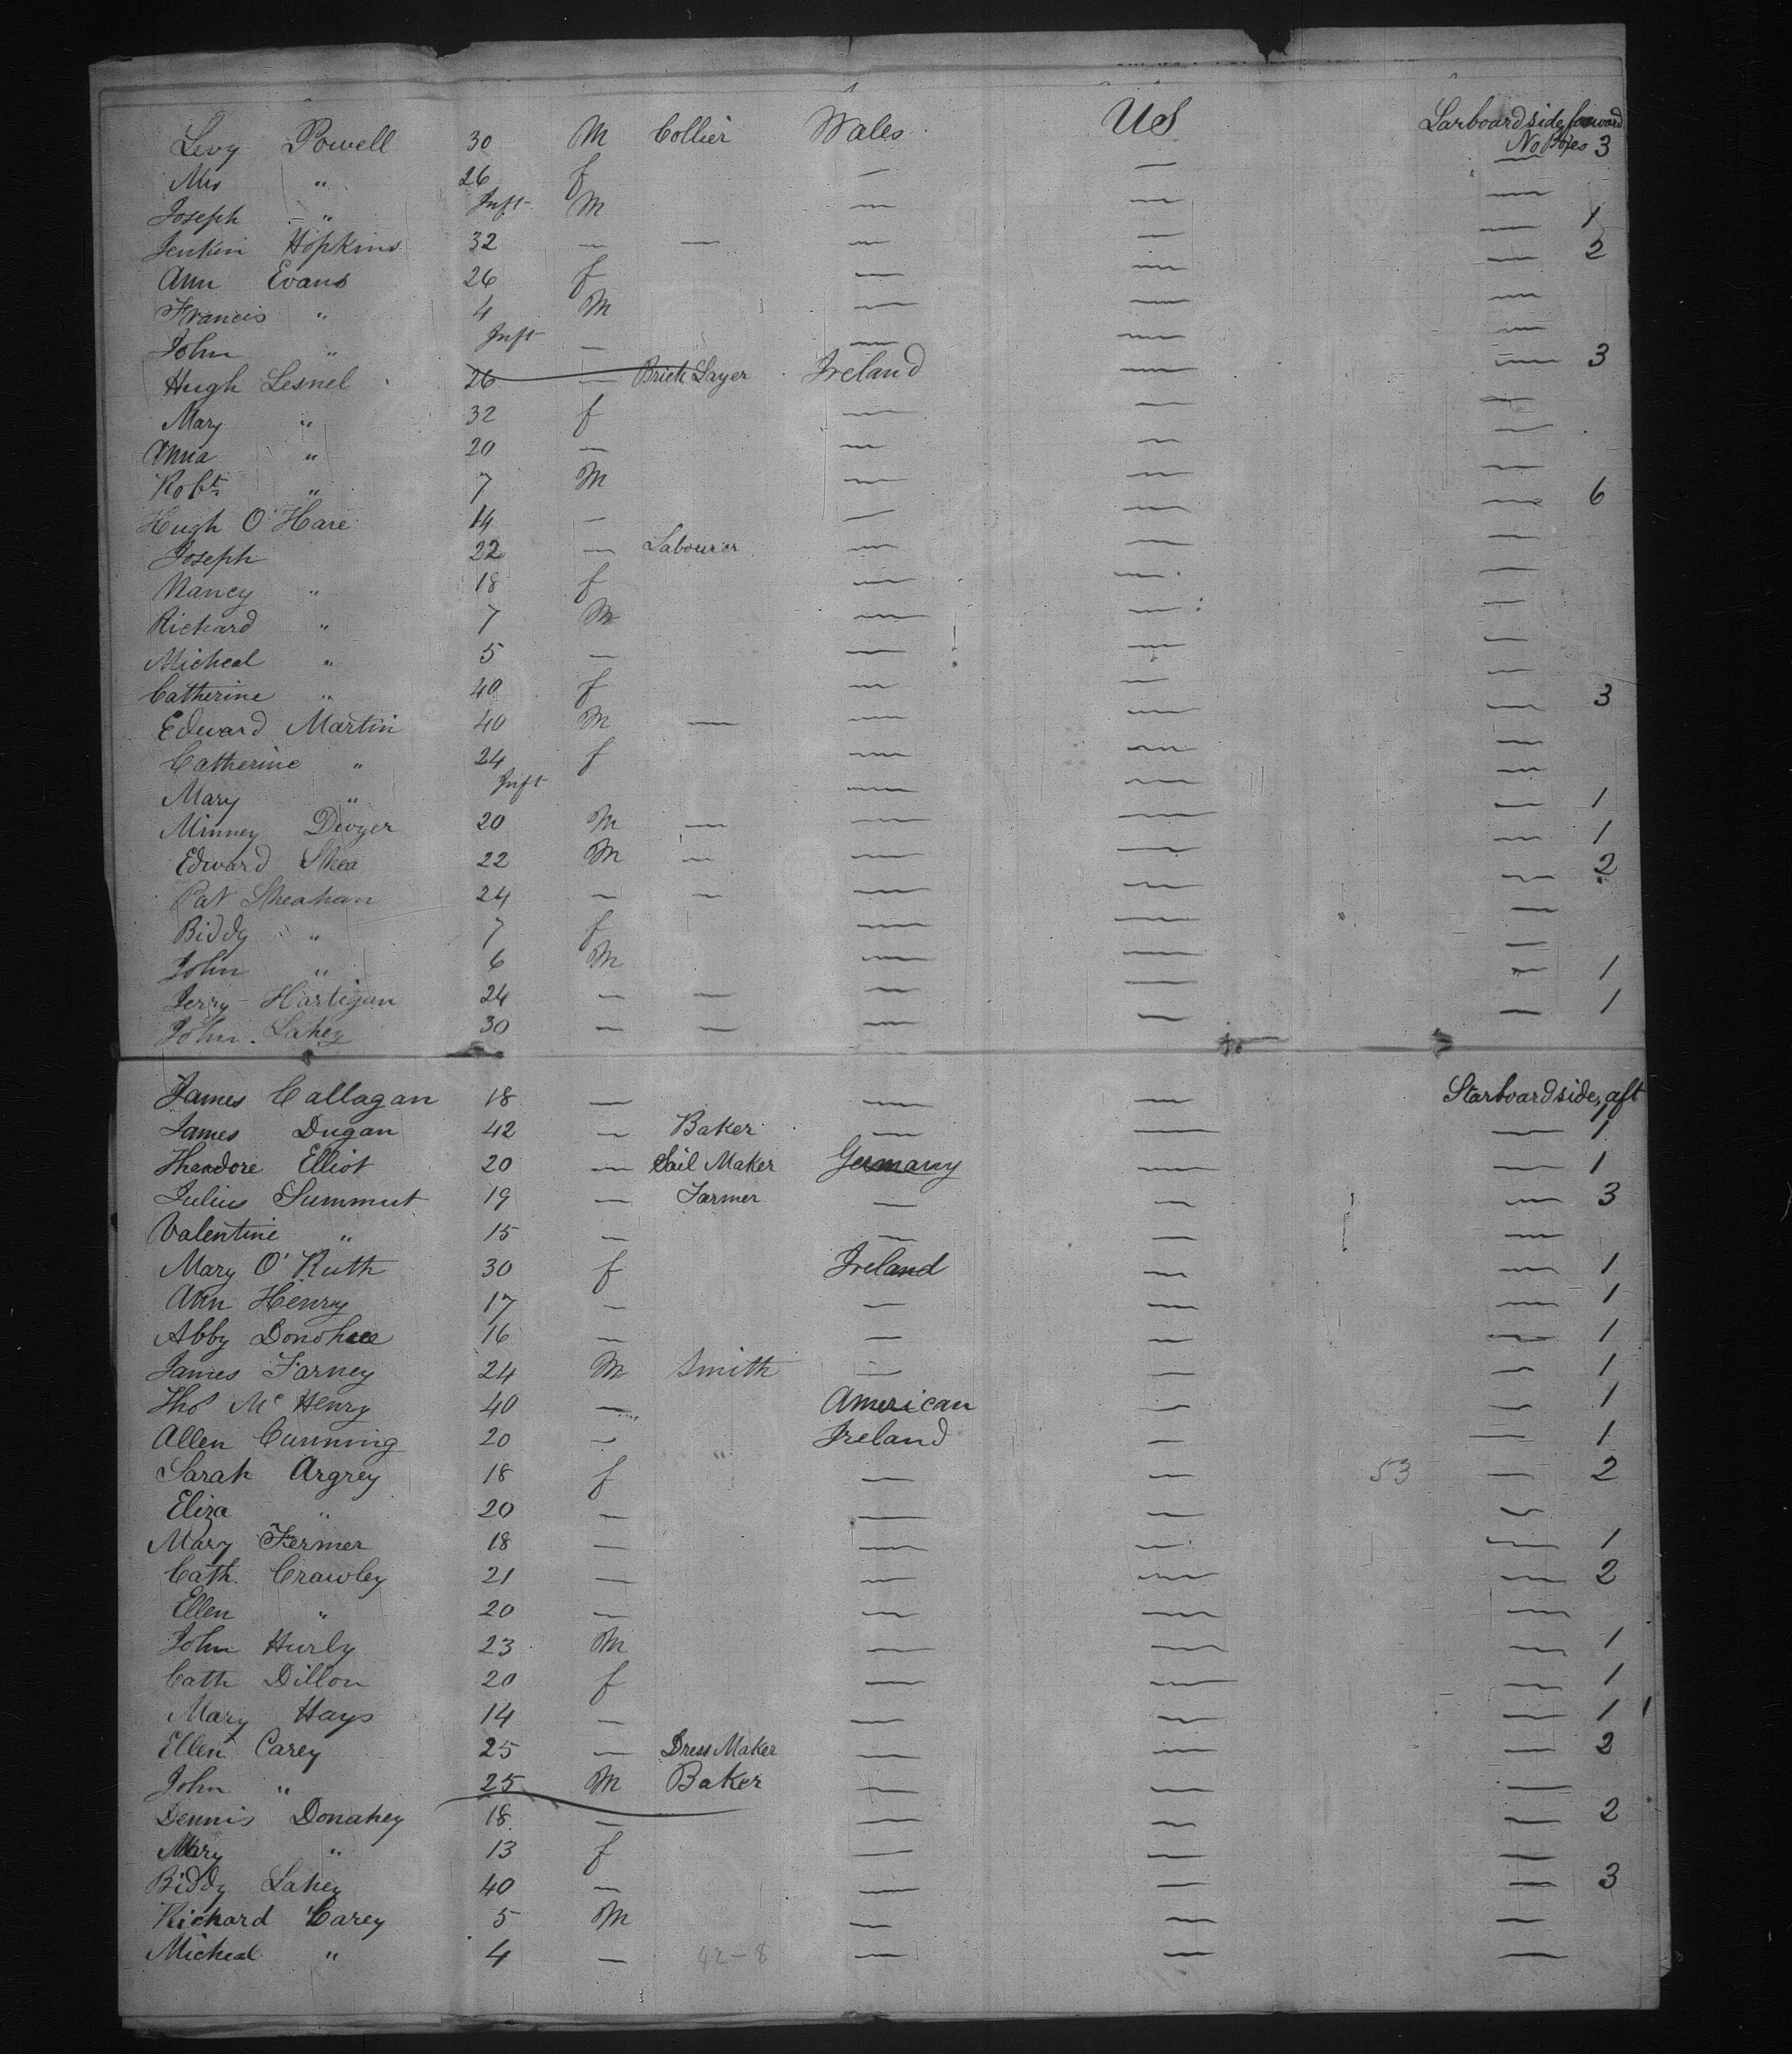 Levy Powell 30 M Collier Wales US Larboard side forward
No Pkges 3
Mrs " 26 f — — —
Joseph " Inft M — — —
Jenkin Hopkins 32 — — — — — 1
Ann Evans 26 f — — — 2
Francis " 4 M — — —
John " Inft — — — —
Hugh Lesnel 26 — Brick Layer Ireland — — 3
Mary " 32 f — — —
Anna " 20 — — — —
Robt " 7 M — — —
Hugh O'Hare 14 — — — — 6
Joseph 22 — Labourer — — —
Nancy " 18 f — — —
Richard " 7 M — — —
Micheal " 5 — — — —
Catherine " 40 f — — —
Edward Martin 40 M — — — — 3
Catherine " 24 f — — —
Mary " Inft — — —
Minney Dwyer 20 M — — — — 1
Edward Shea 22 M — — — — 1
Pat Sheahan 24 — — — — — 2
Biddy " 7 f — — —
John " 6 M — — —
Jerry Hartigan 24 — — — — — 1
John Lahey 30 — — — — — 1
James Callagan 18 — — — Starboard side, aft
James Dugan 42 — Baker — — — 1
Theodore Elliot 20 — Sail Maker Germany — — 1
Julius Summut 19 — Farmer — — — 3
Valentine " 15 — — — —
Mary O'Ruth 30 f Ireland — — 1
Ann Henry 17 — — — — 1
Abby Donohue 16 — — — — 1
James Farney 24 M Smith — — — 1
Thos Mc Henry 40 — American — — 1
Allen Cunning 20 — " Ireland — — 1
Sarah Argrey 18 f — — 53 — 2
Eliza " 20 — — — —
Mary Fermer 18 — — — — 1
Cath. Crawley 21 — — — — 2
Ellen " 20 — — — —
John Hurly 23 M — — — 1
Cath Dillon 20 f — — — 1
Mary Hays 14 — — — — 1 1
Ellen Carey 25 — Dress Maker — — — 2
John " 25 M Baker — — —
Dennis Donahey 18 — — — — 2
Mary " 13 f — — —
Biddy Lahey 40 — — — — 3
Richard Carey 5 M — — —
Micheal " 4 — 42-8 — — —